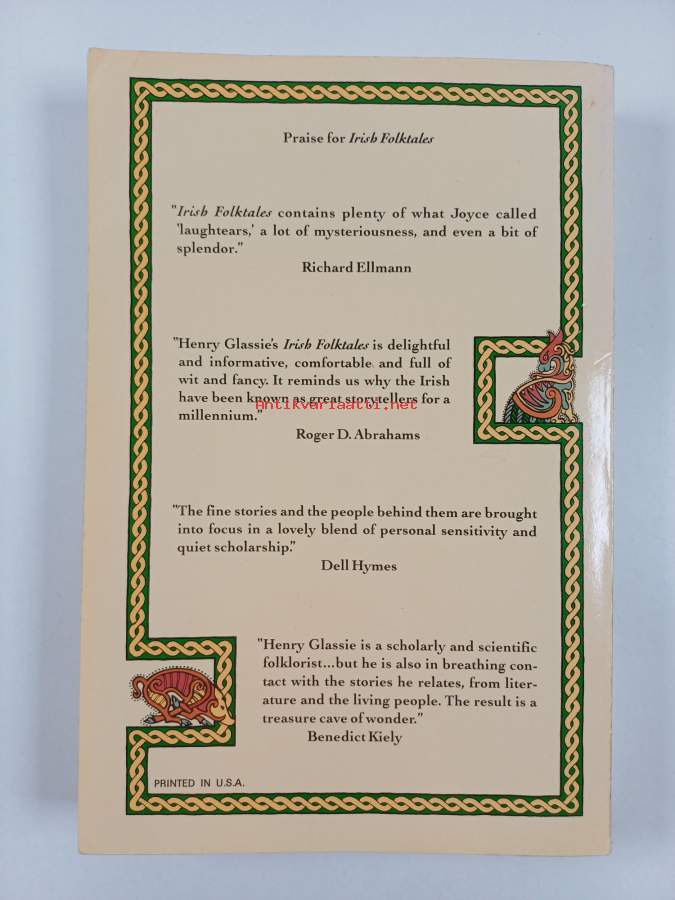 Praise for Irish Folktales
"Irish Folktales contains plenty of what Joyce called
'laughtears,' a lot of mysteriousness, and even a bit of
splendor."
Richard Ellmann
"Henry Glassie's Irish Folktales is delightful
and informative, comfortable and full of
wit and fancy. It reminds us why the Irish
have been known as great storytellers for a
Antikvariaatti.net
millennium."
Roger D. Abrahams
"The fine stories and the people behind them are brought
into focus in a lovely blend of personal sensitivity and
quiet scholarship."
Dell Hymes
"Henry Glassie is a scholarly and scientific
folklorist...but he is also in breathing con-
tact with the stories he relates, from liter-
ature and the living people. The result is a
treasure cave of wonder."
Benedict Kiely
PRINTED IN U.S.A.